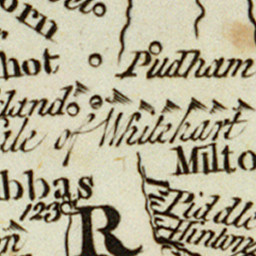 orn
hot
Pudham
land
of Whitehart
Milto
bbas
123
R
Piddle
Hinton